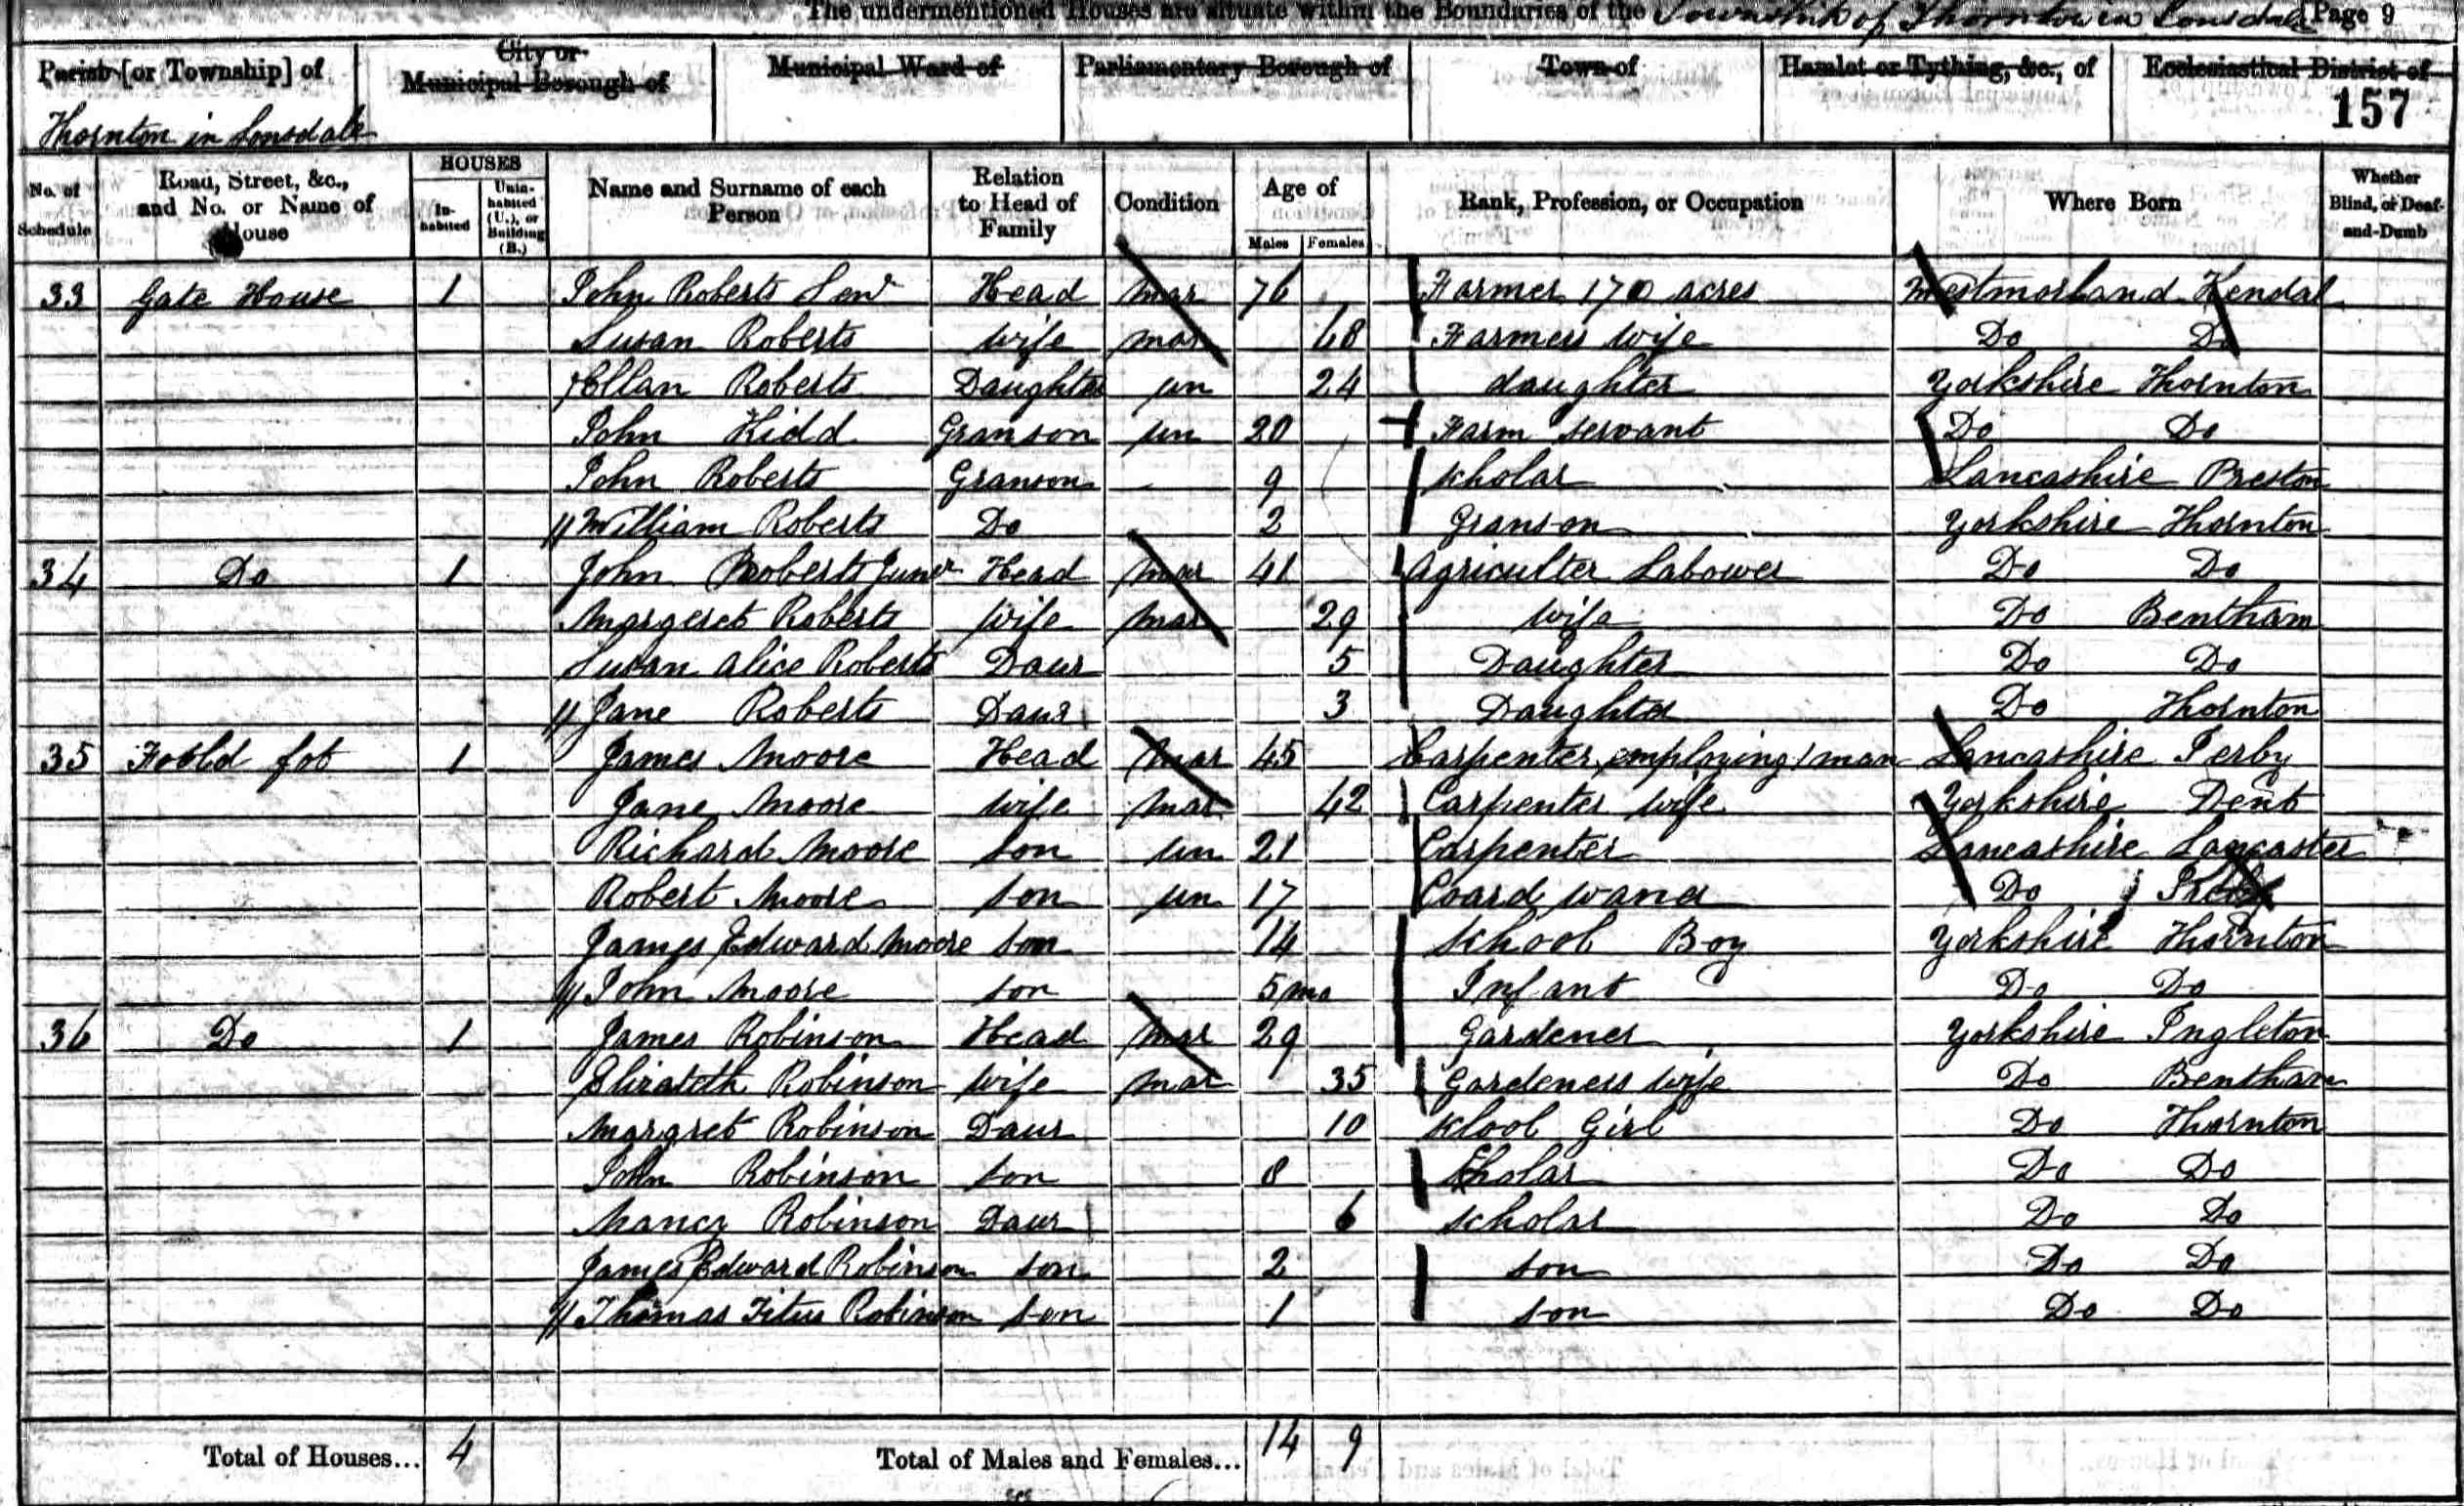 The undermentioned Houses are situate within the Boundaries of the Township of Thornton in Lonsdale Page 9
Parish [or Township] of City or Municipal Borough of Municipal Ward of Parliamentary Borough of Town of Hamlet or Tything, &c., of Ecclesiastical District of
Thornton in Lonsdale 157
No. of Schedule Road, Street, &c., and No. or Name of House HOUSES In-habited Unin-habited (U.), or Building (B.) Name and Surname of each Person Relation to Head of Family Condition Age of Males Females Rank, Profession, or Occupation Where Born Whether Blind, or Deaf-and-Dumb
33 Gate House 1 John Roberts Senr Head mar 76 Farmer 170 acres Westmorland Kendal
Susan Roberts wife mar 68 Farmers wife Do Do
Ellan Roberts Daughter un 24 daughter Yorkshire Thornton
John Kidd Granson un 20 Farm servant Do Do
John Roberts Granson 9 scholar Lancashire Preston
William Roberts Do 2 Granson Yorkshire Thornton
34 Do 1 John Roberts Junr Head mar 41 Agriculter Labower Do Do
Margeret Roberts wife mar 29 wife Do Bentham
Susan Alice Roberts Daur 5 Daughter Do Do
Jane Roberts Daur 3 Daughter Do Thornton
35 1 James Moore Head mar 45 Carpenter employing 1 man Lancashire
Jane Moore wife mar 42 Carpenter wife Yorkshire Dent
Richard Moore son un 21 Carpenter Lancashire Lancaster
Robert Moore son un 17 Coard waner Do
James Edward Moore son 14 School Boy Yorkshire Thornton
John Moore son 5 mo Infant Do Do
36 Do 1 James Robinson Head mar 29 Gardener Yorkshire Ingleton
Elizabeth Robinson wife mar 35 Gardeners wife Do Bentham
Margret Robinson Daur 10 Girl Do Thornton
John Robinson son 8 Scholar Do Do
Nancy Robinson Daur 6 scholar Do Do
James Edward Robinson son 2 son Do Do
Thomas Titus Robinson son 1 son Do Do
Total of Houses... 4 Total of Males and Females... 14 9